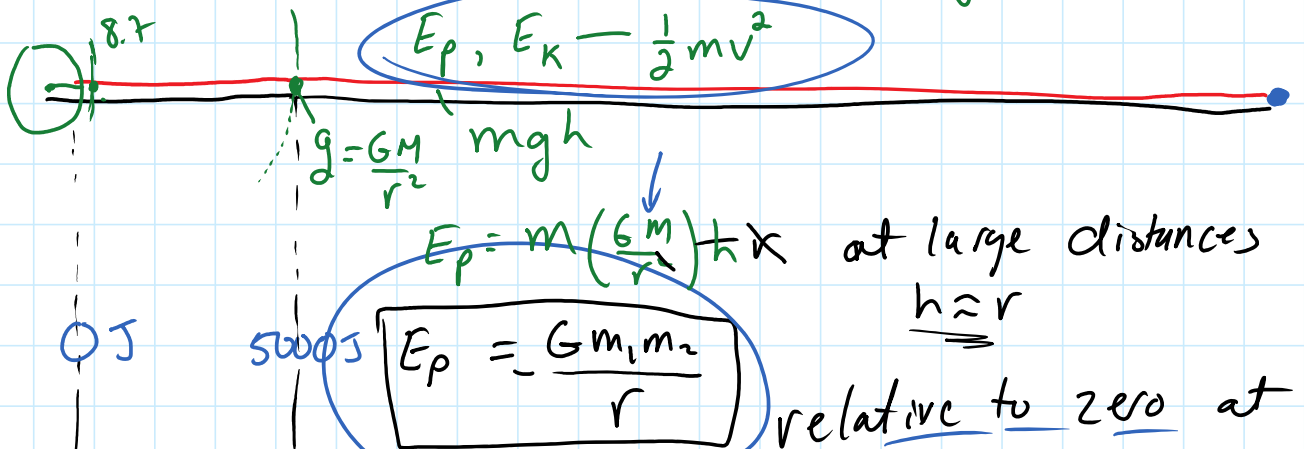 8.7
E_p, E_K — 1/2 mv²
g = GM/r²
mgh
E_p = m(Gm/r²)h
at large distances
h ≈ r
0 J
5000 J
E_p = - G m₁ m₂ / r
relative to zero at